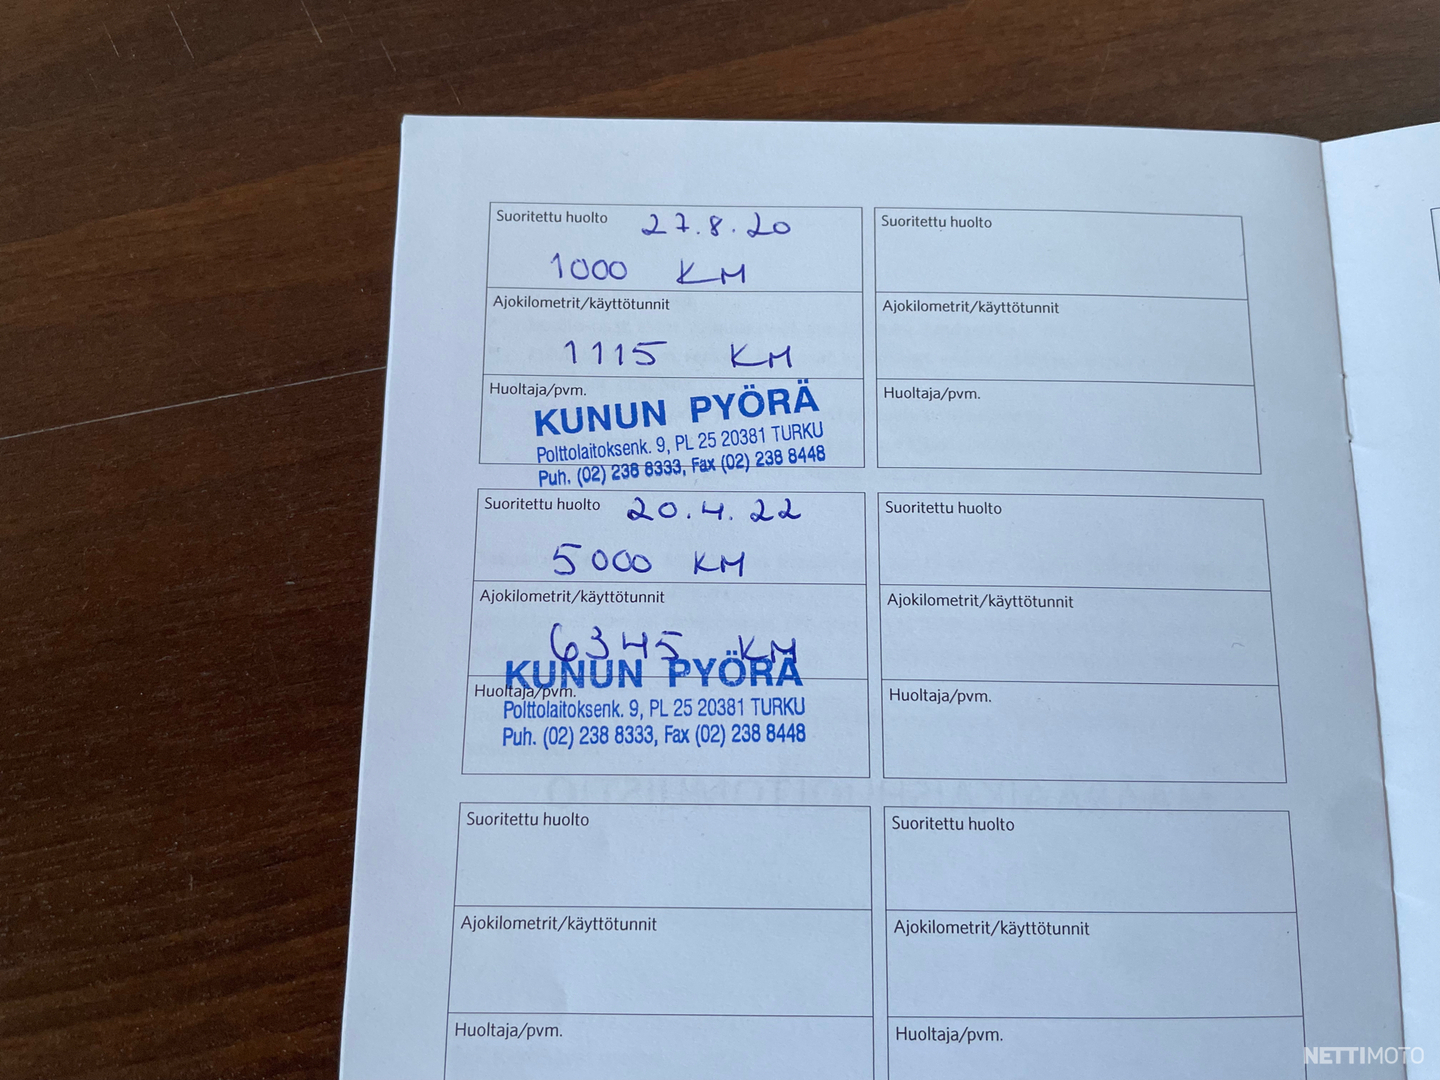 Suoritettu huolto 27.8.20
1000 KM
Ajokilometrit/käyttötunnit
1115 KM
Huoltaja/pvm.
KUNUN PYÖRÄ
Polttolaitoksenk. 9, PL 25 20381 TURKU
Puh. (02) 238 8333, Fax (02) 238 8448
Suoritettu huolto
Ajokilometrit/käyttötunnit
Huoltaja/pvm.
Suoritettu huolto 20.4.22
5000 KM
Ajokilometrit/käyttötunnit
6345 KM
Huoltaja/pvm.
KUNUN PYÖRÄ
Polttolaitoksenk. 9, PL 25 20381 TURKU
Puh. (02) 238 8333, Fax (02) 238 8448
Suoritettu huolto
Ajokilometrit/käyttötunnit
Huoltaja/pvm.
Suoritettu huolto
Ajokilometrit/käyttötunnit
Huoltaja/pvm.
Suoritettu huolto
Ajokilometrit/käyttötunnit
Huoltaja/pvm.
NETTIMOTO